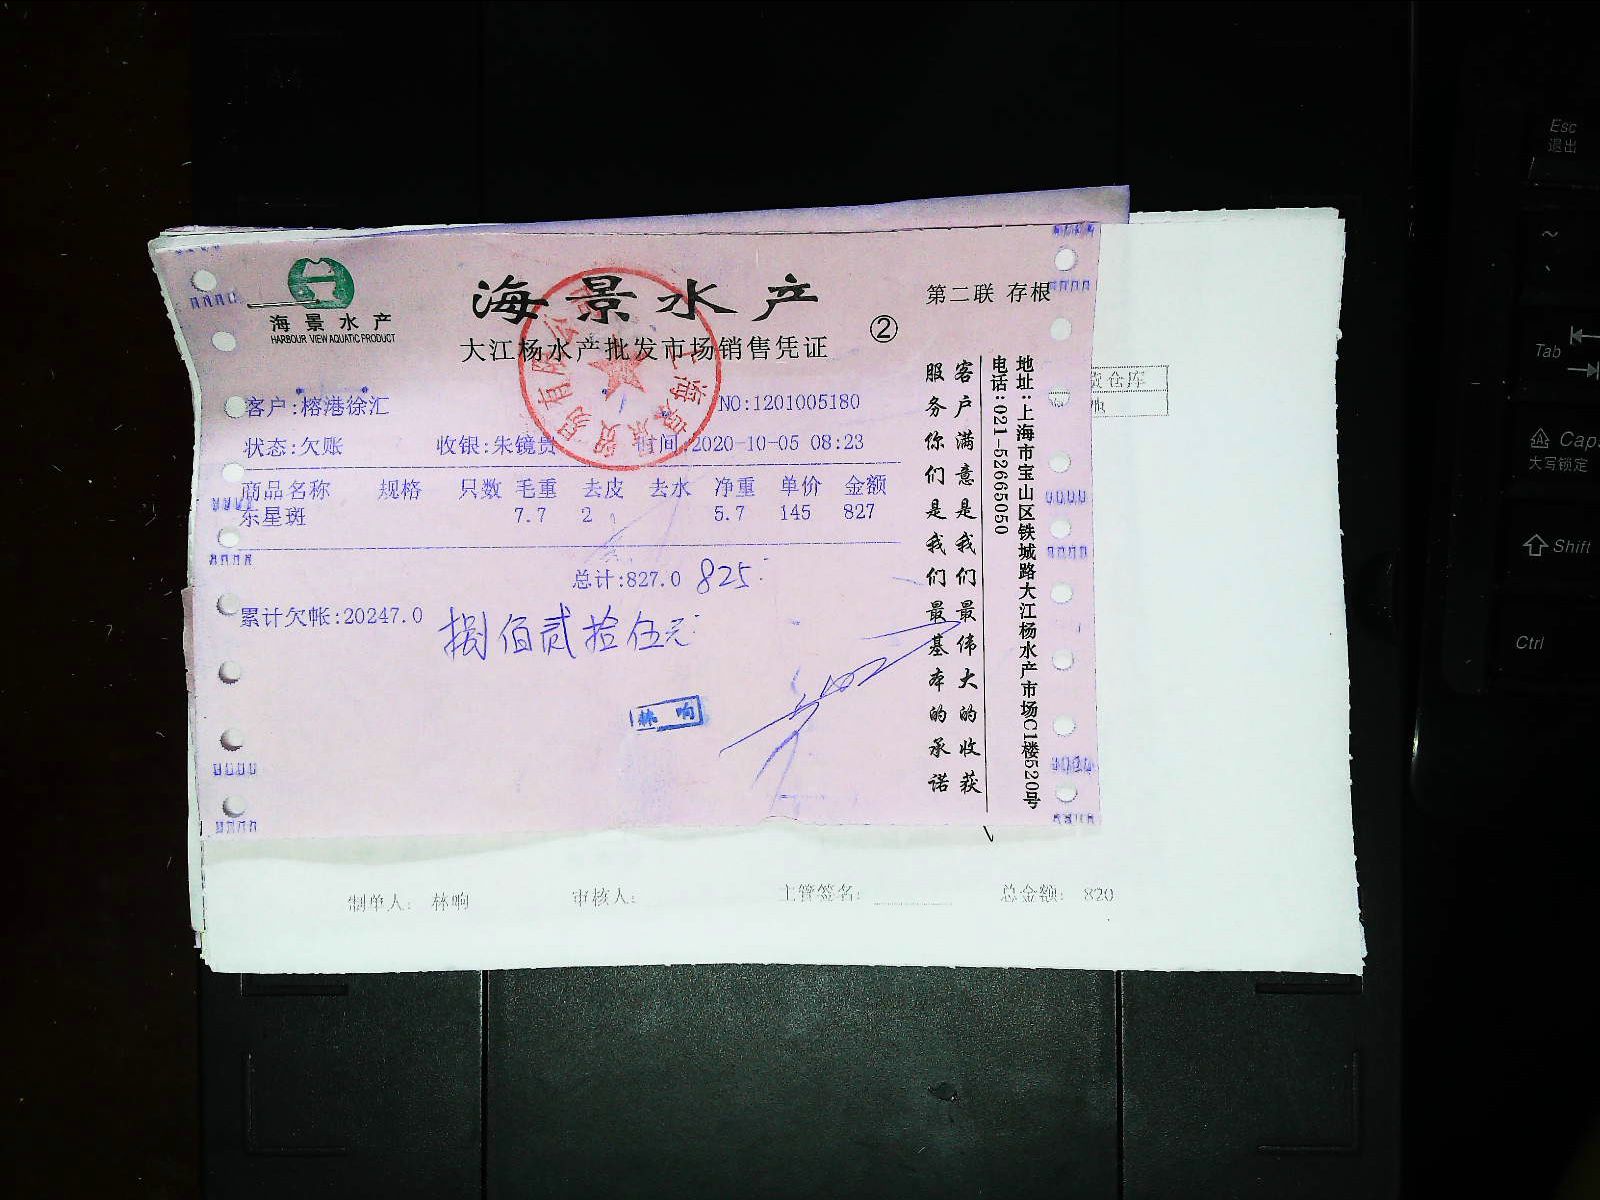 海景水产
HARBOUR VIEW AQUATIC PRODUCT
海景水产
大江杨水产批发市场销售凭证
②
第二联 存根
客户:榕港徐汇
NO:1201005180
状态:欠账 收银:朱镜贵 时间:2020-10-05 08:23
商品名称 规格 只数 毛重 去皮 去水 净重 单价 金额
东星斑 7.7 2 5.7 145 827
总计:827.0 825
累计欠帐:20247.0
捌佰贰拾伍元
林响
客户满意是我们最伟大的收获
服务你们是我们最基本的承诺
地址:上海市宝山区铁城路大江杨水产市场C1楼520号
电话:021-52665050
制单人: 林响 审核人: 主管签名: 总金额: 820
Esc
退出
~
Tab
Cap
大写锁定
Shift
Ctrl